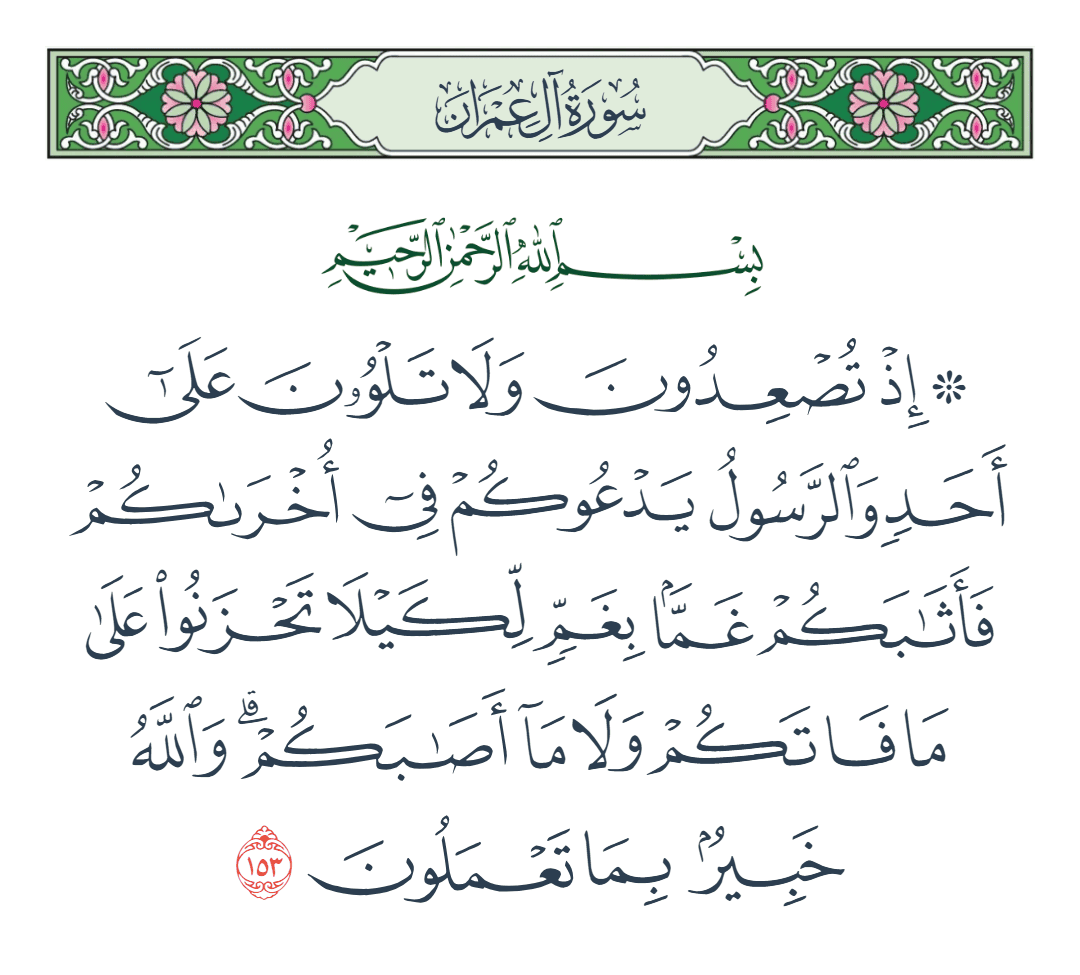 سُورَةُ آلِ عِمْرَانَ
بِسْمِ ٱللَّهِ ٱلرَّحْمَٰنِ ٱلرَّحِيمِ
۞ إِذْ تُصْعِدُونَ وَلَا تَلْوُۥنَ عَلَىٰٓ
أَحَدٍ وَٱلرَّسُولُ يَدْعُوكُمْ فِىٓ أُخْرَىٰكُمْ
فَأَثَٰبَكُمْ غَمًّۢا بِغَمٍّ لِّكَيْلَا تَحْزَنُوا۟ عَلَىٰ
مَا فَاتَكُمْ وَلَا مَآ أَصَٰبَكُمْ ۗ وَٱللَّهُ
خَبِيرٌۢ بِمَا تَعْمَلُونَ ١٥٣